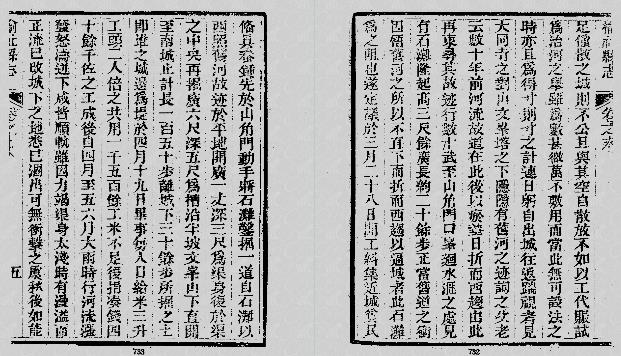 榆社縣志
卷之末
足僱傲之城則不公且與其空自散放不如以工代賑試
爲治河之舉雖爲數甚微萬不敷用而當此無可設法之
時亦且爲得寸則寸之計連日躬自出城往返踏視者見
大河之東山文峯塔之下隱隱有舊河之迹詢之父老
云數十年前河流故道在此後以瘀墊日折而西趨由此
再東尋其故迹行數十武至山角門口峯迴水滙之處見
有石灘隆起高三尺餘廣長約二十餘步正當舊道之衝
因悟舊河之所以不直下而折而西趨以逼城者此石灘
爲之阻也遂定議於三月二十八日開工糾集近城貧民
732
備具畚鍤先於山角門動手將石灘鑿掘一道自石灘以
西照舊河故迹於平地開廣一丈深三尺爲渠身復於渠
之中央再掘廣六尺深五尺爲槽沿牢坡文峯山下直開
至南城止計長一百五十步離城下三十餘步所掘之土
即進之城邊爲堤於四月十九日畢事每人日給米三升
工頭二人倍之共用一千五百餘工米不足復捐湊錢四
十餘千佐之工成後自四月至五六月大雨時行河流漲
發怒濤迹下咸皆順軌雖因力竭渠身太淺時有漫溢而
正流已改城下之地悉已涸出可無衝擊之虞秋後如能
榆社縣志
五
733